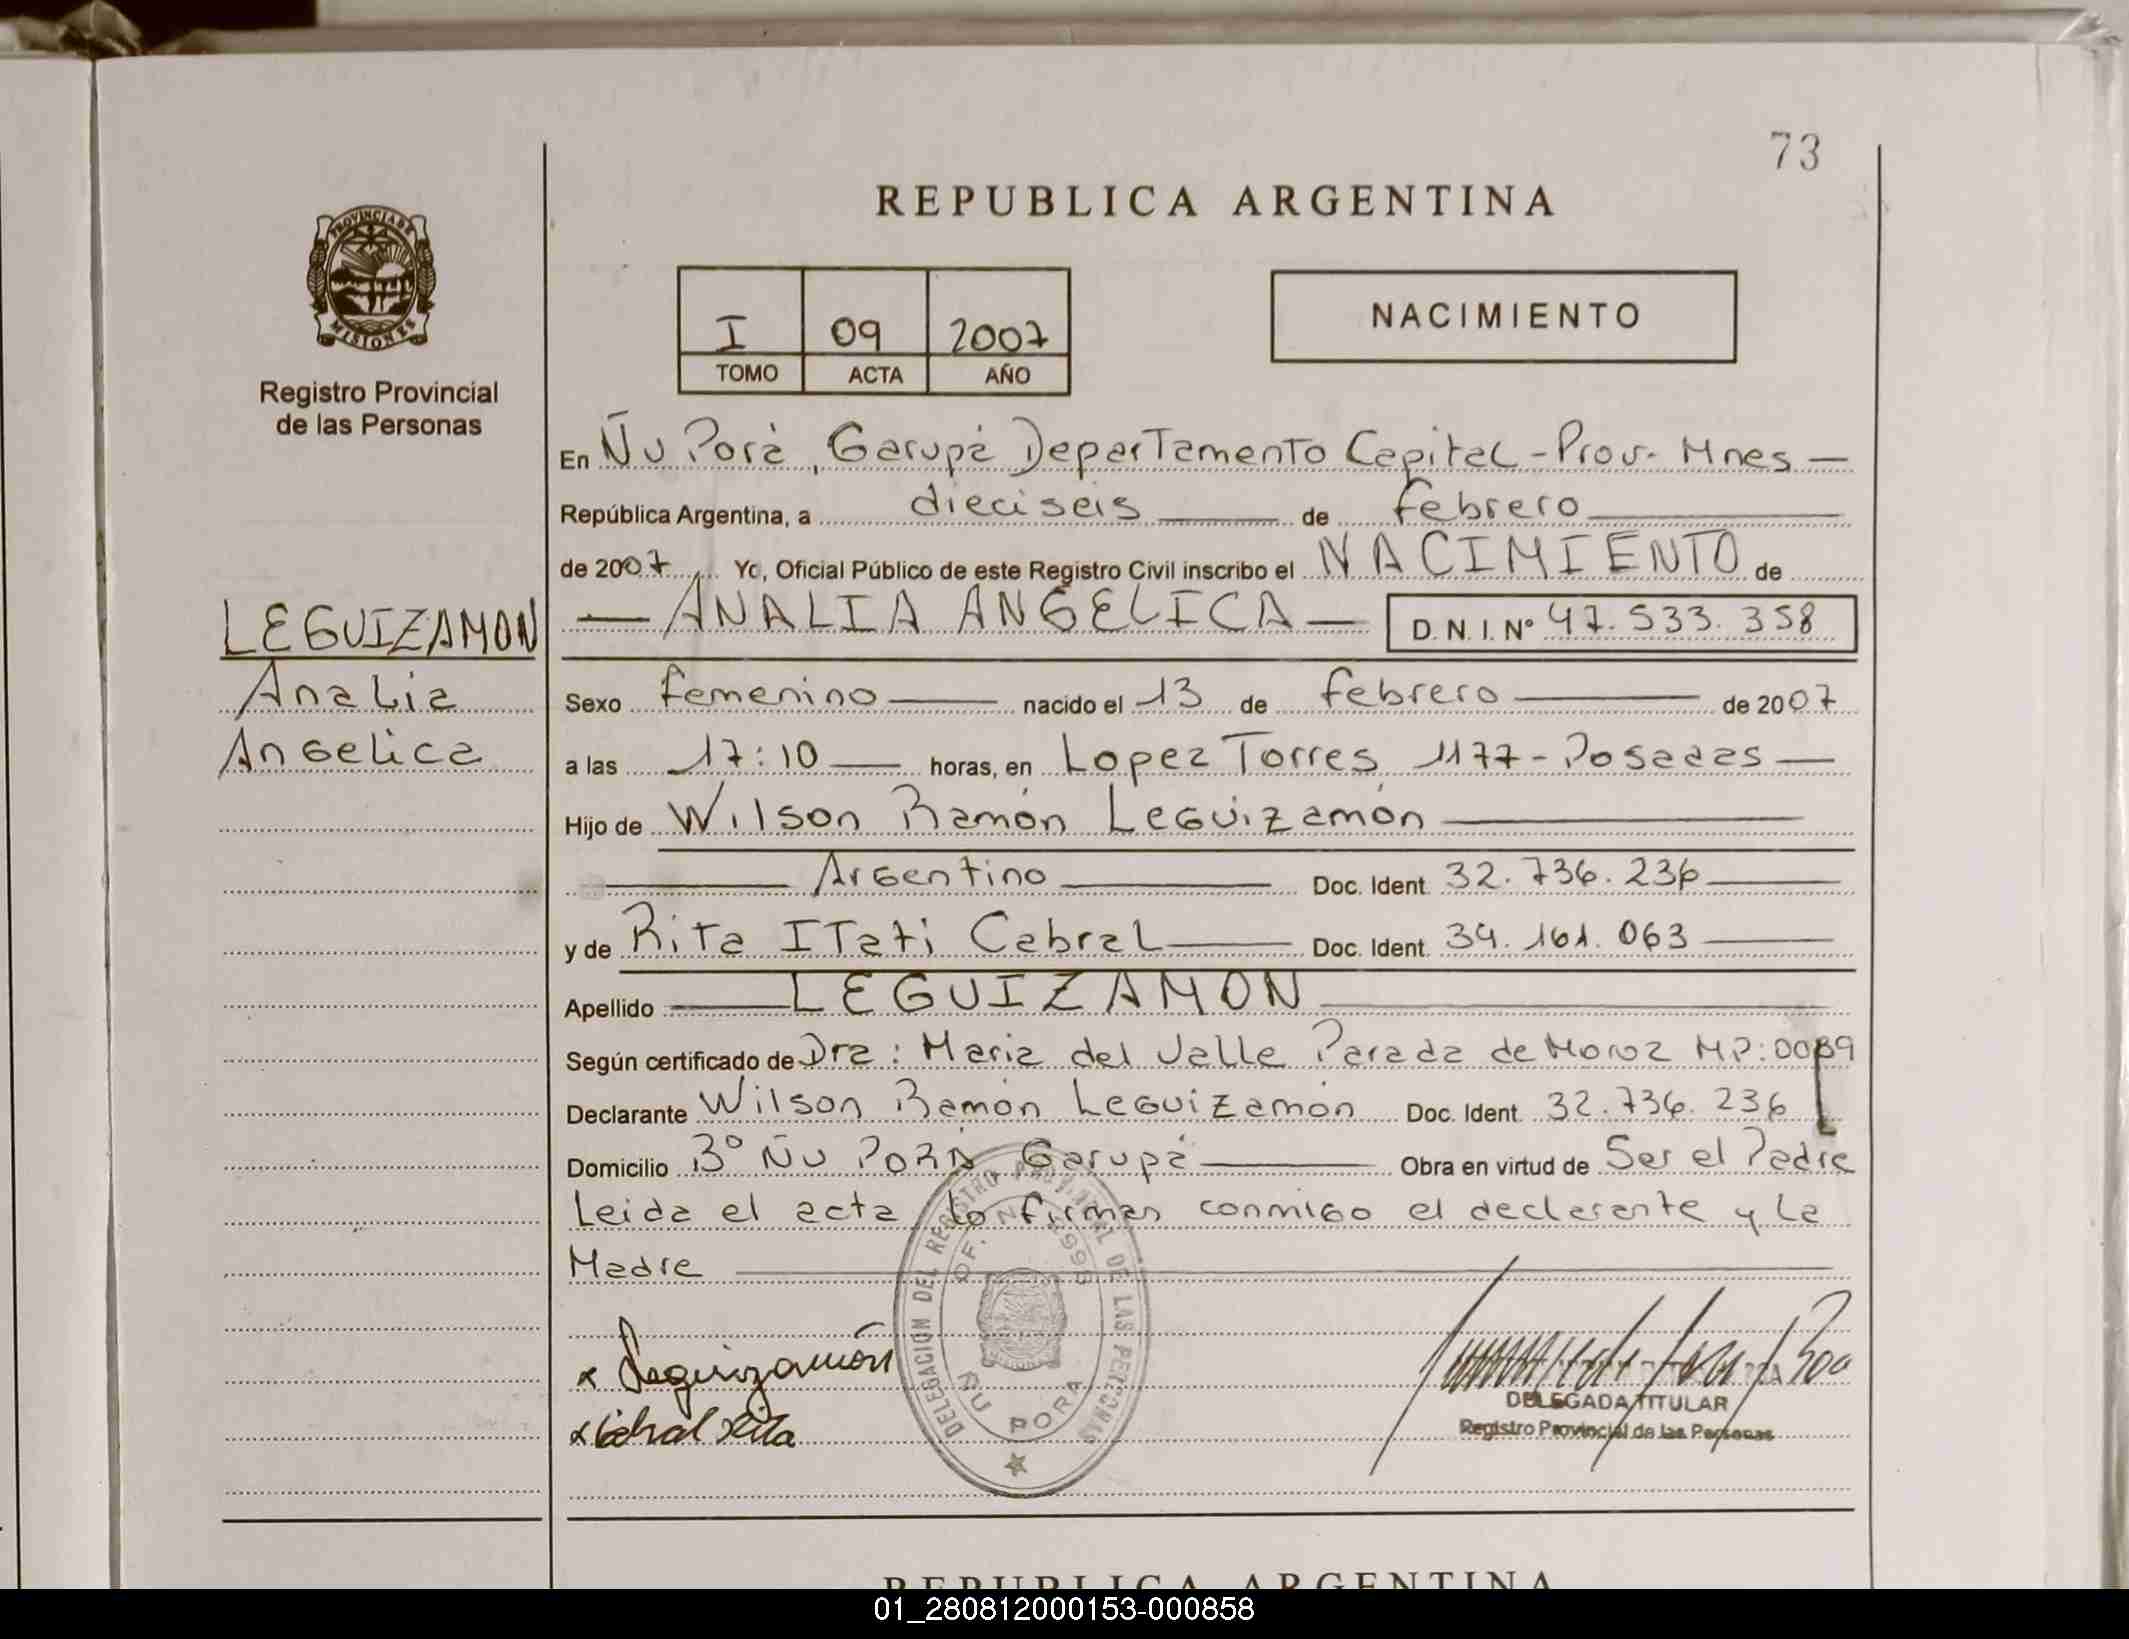 73
REPUBLICA ARGENTINA
PROVINCIA DE
MISIONES
Registro Provincial
de las Personas
I 09 2007
TOMO ACTA AÑO
NACIMIENTO
En Ñu Porà, Garupá Departamento Capital - Prov. Mnes —
República Argentina, a dieciseis de febrero
de 2007 Yo, Oficial Público de este Registro Civil inscribo el NACIMIENTO de
— ANALIA ANGELICA — D.N.I. Nº 47.533.358
LEGUIZAMON
Analia
Angelica
Sexo femenino nacido el 13 de febrero de 2007
a las 17:10 horas, en Lopez Torres 1177 - Posadas —
Hijo de Wilson Ramón Leguizamón
Argentino Doc. Ident. 32.736.236
y de Rita Itati Cabral Doc. Ident. 34.161.063
Apellido LEGUIZAMON
Según certificado de Dra: Maria del Valle Parada de Moroz MP:
Declarante Wilson Ramón Leguizamón Doc. Ident. 32.736.236
Domicilio Bº Ñu PORA Garupá Obra en virtud de Ser el Padre
Leida el acta, lo firman conmigo el declarante y la
Madre
DELEGACION DEL REGISTRO PROVINCIAL DE LAS PERSONAS
OF. 1993
ÑU PORA
x Leguizamón
x Cabral Rita
DELEGADA TITULAR
Registro Provincial de las Personas
REPUBLICA ARGENTINA
01_280812000153-000858